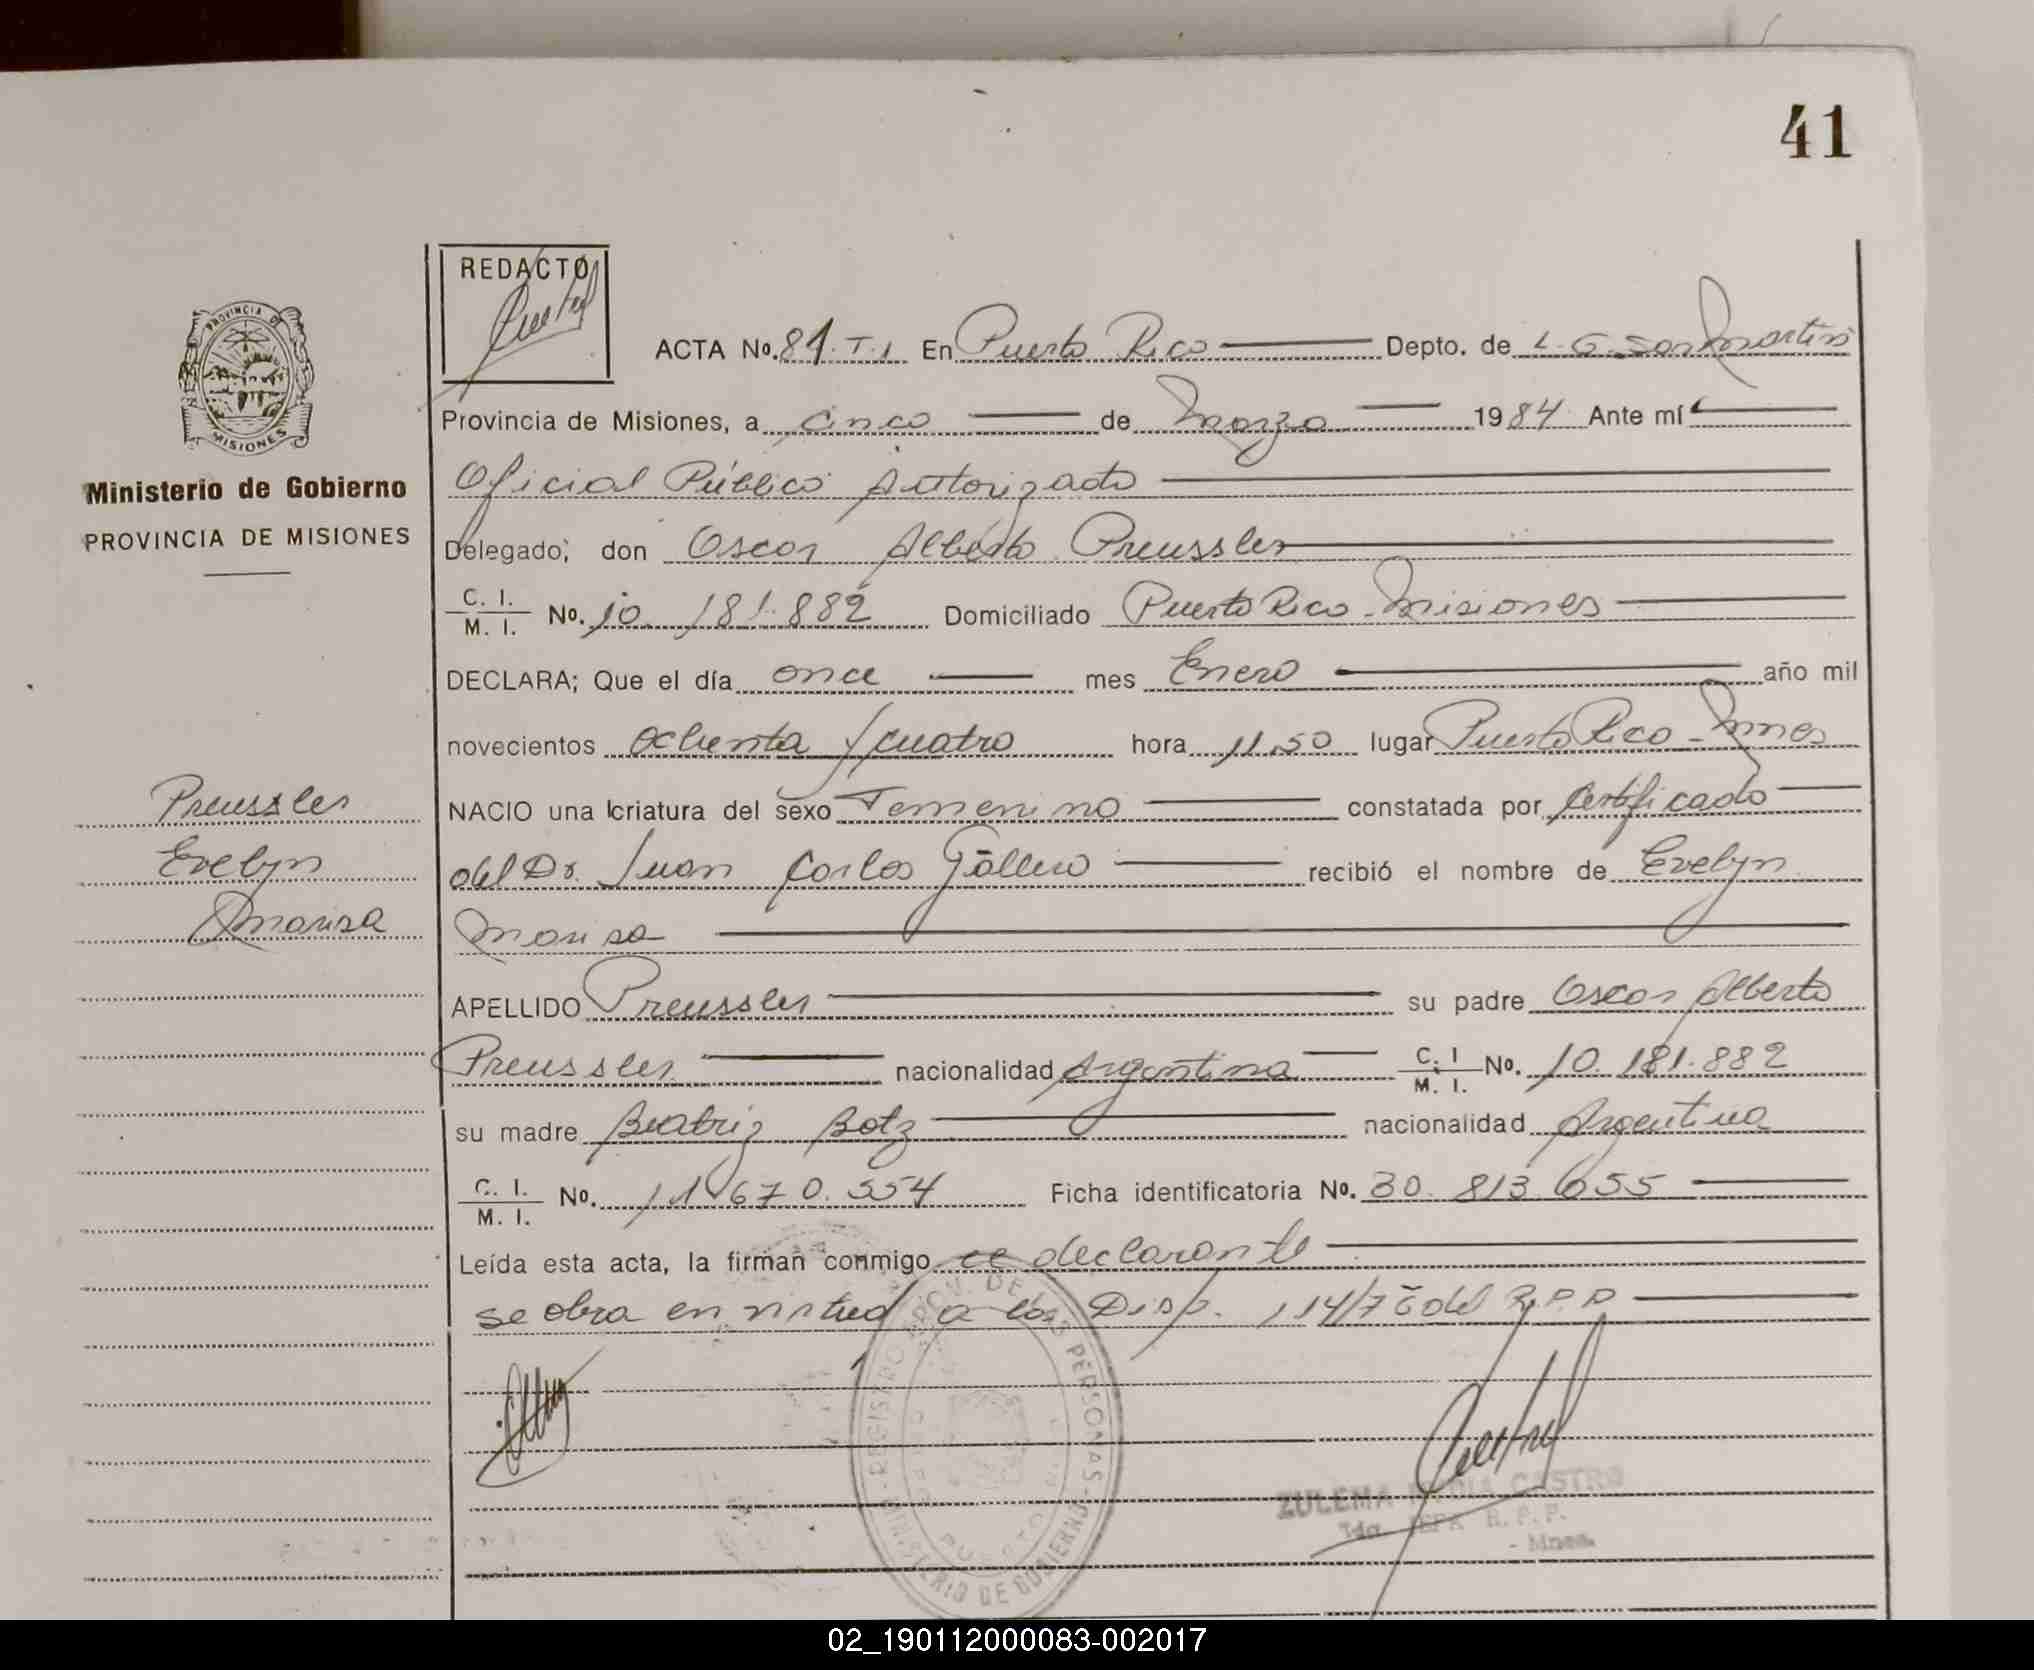 41
REDACTO
PROVINCIA DE
MISIONES
Ministerio de Gobierno
PROVINCIA DE MISIONES
Preussler
Evelyn
Marisa
ACTA No. 81.T.I En Puerto Rico Depto. de L. G. San Martin
Provincia de Misiones, a cinco de Marzo 1984 Ante mí
Oficial Público Autorizado
Delegado; don Oscar Alberto Preussler
C. I.
M. I. No. 10.181.882 Domiciliado Puerto Rico - Misiones
DECLARA; Que el día once mes Enero año mil
novecientos ochenta y cuatro hora 11,50 lugar Puerto Rico - Mnes
NACIO una criatura del sexo Femenino constatada por Certificado
del Dr. Juan Carlos recibió el nombre de Evelyn
Marisa
APELLIDO Preussler su padre Oscar Alberto
Preussler nacionalidad Argentina C. I M. I. No. 10.181.882
su madre Beatriz Botz nacionalidad Argentina
C. I.
M. I. No. 11.670.554 Ficha identificatoria No. 30.813.655
Leída esta acta, la firman conmigo el declarante
se obra en virtud a las Disp. 114/76 del R.P.P
REGISTRO PROV. DE LAS PERSONAS - MINISTERIO DE GOBIERNO
ZULEMA CASTRO
R. P. P.
- Mnes.
02_190112000083-002017